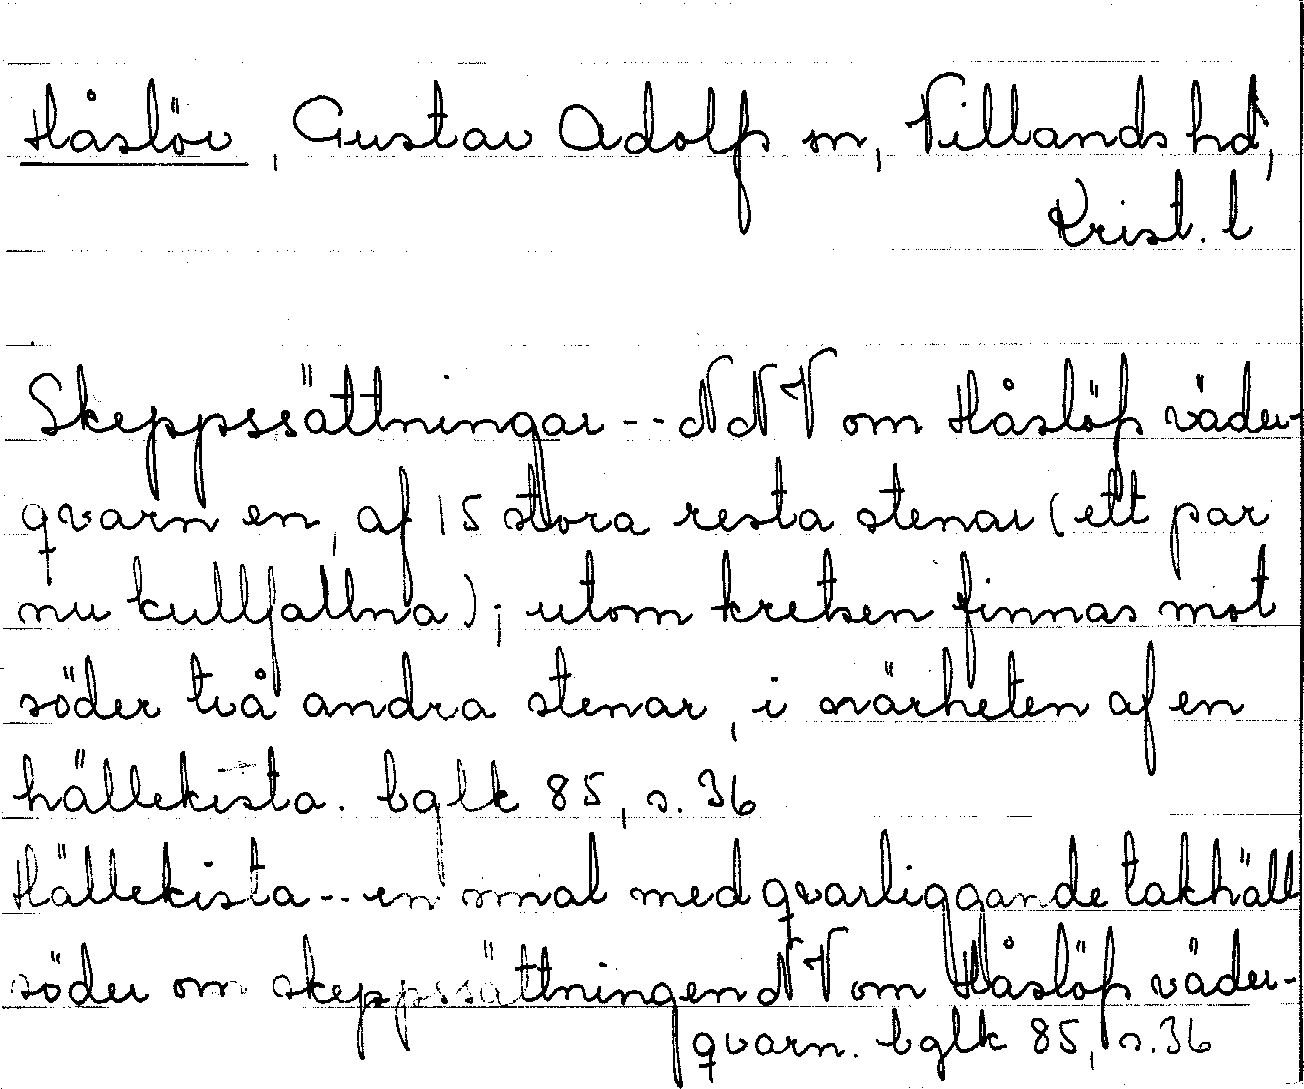 Håslöv, Gustav Adolfs sn, Villands hd,
Krist. l
Skeppssättningar -- NNV om Håslöfs väder-
qvarn en, af 15 stora resta stenar (ett par
nu kullfallna); utom kretsen finnas mot
söder två andra stenar, i närheten af en
hällekista. bglk 85, s. 36
Hällekista -- en smal med qvarliggande takhäll
söder om skeppssättningen NV om Håslöfs väder-
qvarn. bglk 85, s. 36